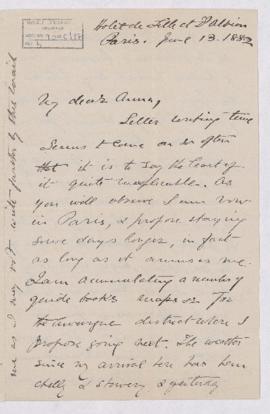 Hotel de Lille et d'Albion
Paris. June 13. 1882
My dear Anna,
Letter writing time
seems to come on so often
that it is to say the least of
it quite
you will observe I am now
in Paris, I propose staying
some days longer, in fact
as long as it amuses me.
I am accumulating a number of
guide books maps &c for
the Auvergne district where I
propose going next. The weather
since my arrival here has been
chilly & showery & yesterday
me as I may not write further by this mail